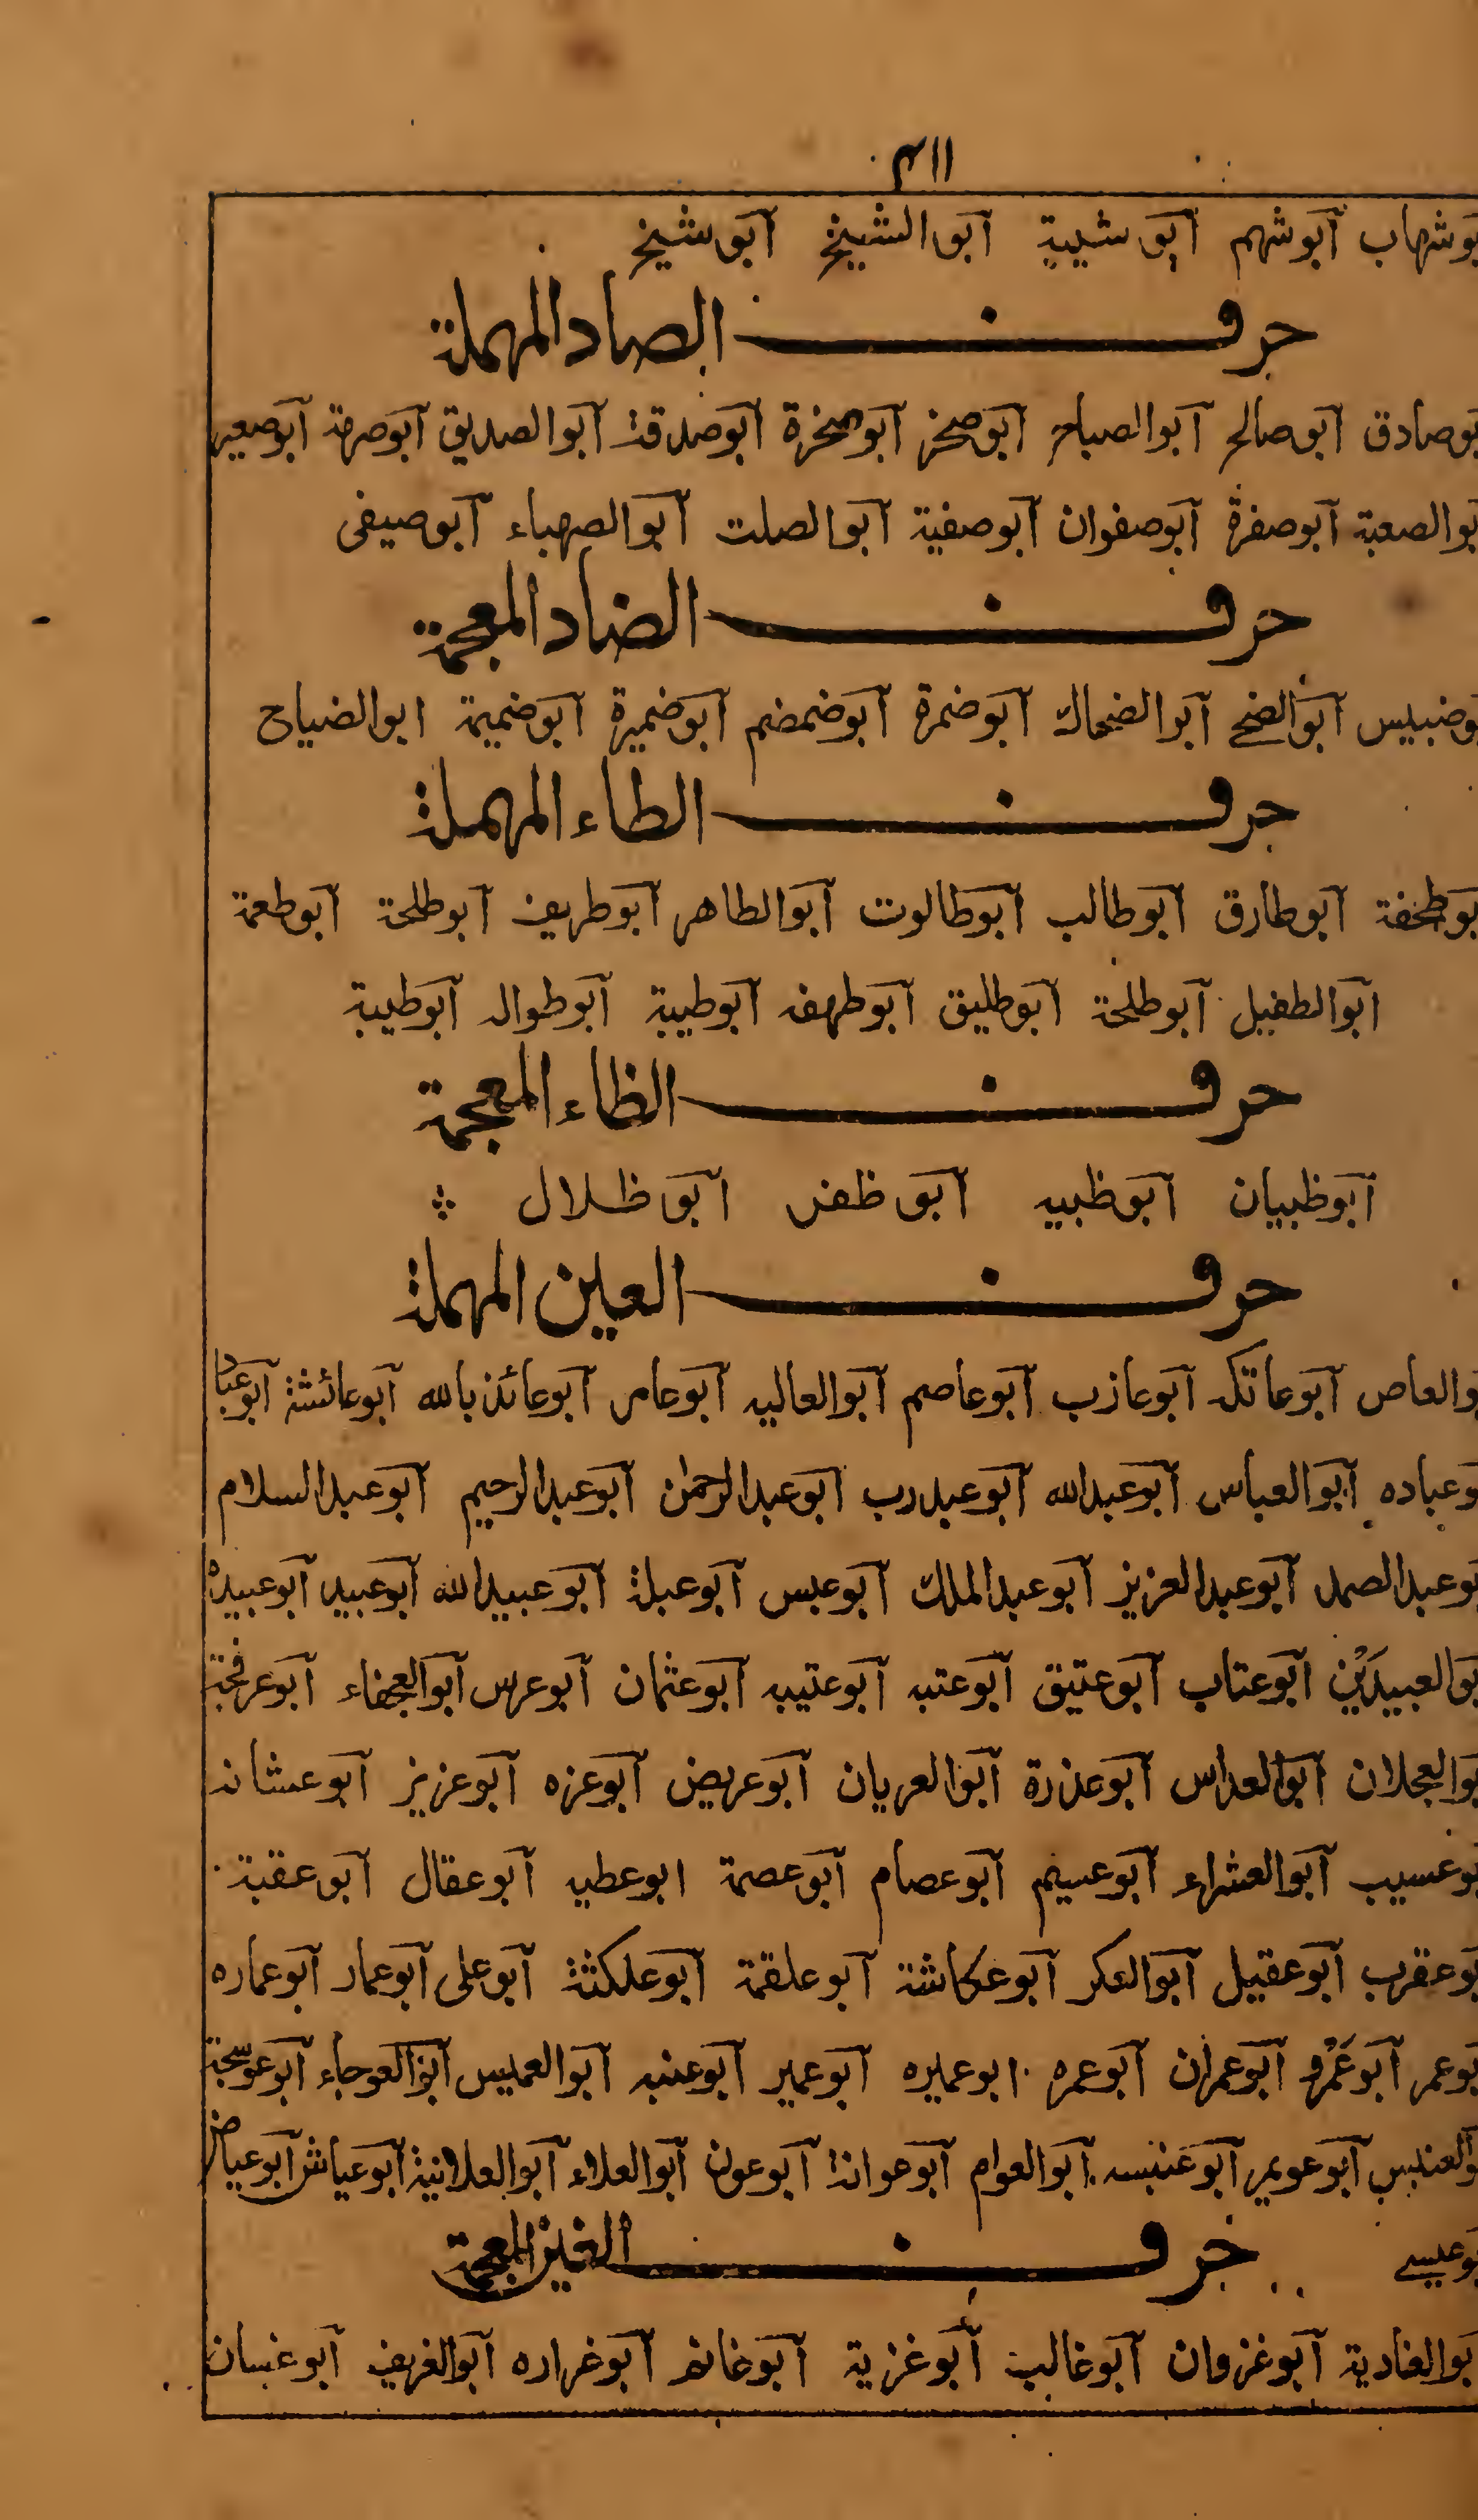 ٣١١
بوشهاب أبوشهم أبوشيبة أبوالشيخ أبوشيخ
حرف الصاد المهملة
بوصادق أبوصالح أبوالصباح أبوصخر أبوصخرة أبوصدقة أبوالصديق أبوصرمة أبوصعير
بوالصعبة أبوصفرة أبوصفوان أبوصفية أبوالصلت أبوالصهباء أبوصيفى
حرف الضاد المعجمة
وضبيس أبوالضحى أبوالضحاك أبوضمرة أبوضمضم أبوضميرة أبوضميمة ابوالضياح
حرف الطاء المهملة
بوطخفة أبوطارق أبوطالب أبوطالوت أبوالطاهر أبوطريف أبوطلحة أبوطعمة
أبوالطفيل أبوطلحة أبوطليق أبوطهفه أبوطيبة أبوطواله أبوطيبة
حرف الظاء المعجمة
أبوظبيان أبوظبيه أبوظفر أبوظلال
حرف العين المهملة
والعاص أبوعاتكه أبوعازب أبوعاصم أبوالعاليه أبوعامر أبوعائذبالله أبوعائشة أبوعباد
وعباده أبوالعباس أبوعبدالله أبوعبدرب أبوعبدالرحمٰن أبوعبدالرحيم أبوعبدالسلام
بوعبدالصمد أبوعبدالعزيز أبوعبدالملك أبوعبس أبوعبلة أبوعبيدالله أبوعبيد أبوعبيدة
بوالعبيدَيْن أبوعتاب أبوعتيق أبوعتبه أبوعتيبه أبوعثمان أبوعرس أبوالعجفاء أبوعرفجة
بوالعجلان أبوالعداس أبوعذرة أبوالعريان أبوعريض أبوعزه أبوعزيز أبوعشانه
بوعسيب أبوالعشراء أبوعسيم أبوعصام أبوعصمة ابوعطيه أبوعقال أبوعقبة
بوعقرب أبوعقيل أبوالعكر أبوعكاشة أبوعلقمة أبوعلكثة أبوعلى أبوعمار أبوعماره
بوعمر أبوعَمْرو أبوعمران أبوعمره ابوعميره أبوعمير أبوعنبه أبوالعميس أبوالعوجاء أبوعوسجة
والعنبس أبوعويمر أبوعنبسه أبوالعوام أبوعوانة أبوعون أبوالعلاء أبوالعلانية أبوعياش أبوعياض
بوعيسى حرف الغين المعجمة
بوالغادية أبوغزوان أبوغالب أبوغزية أبوغانم أبوغراره أبوالغريف أبوغسان